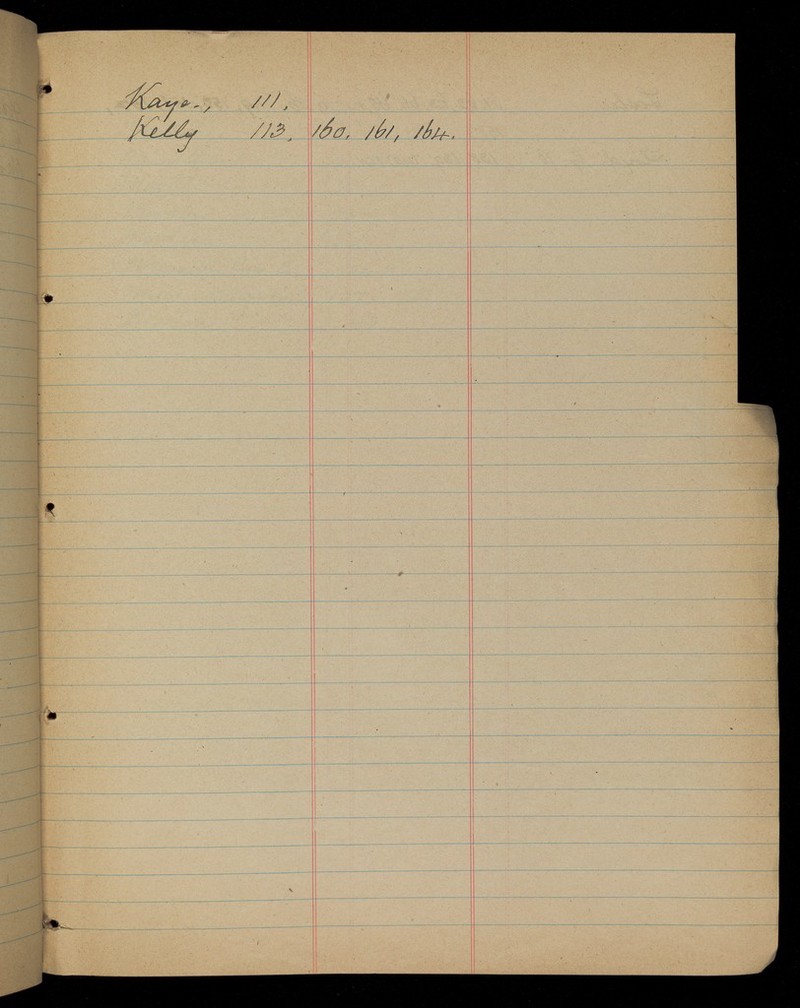 Kaye., 111.
Kelly 113. 160. 161, 164.